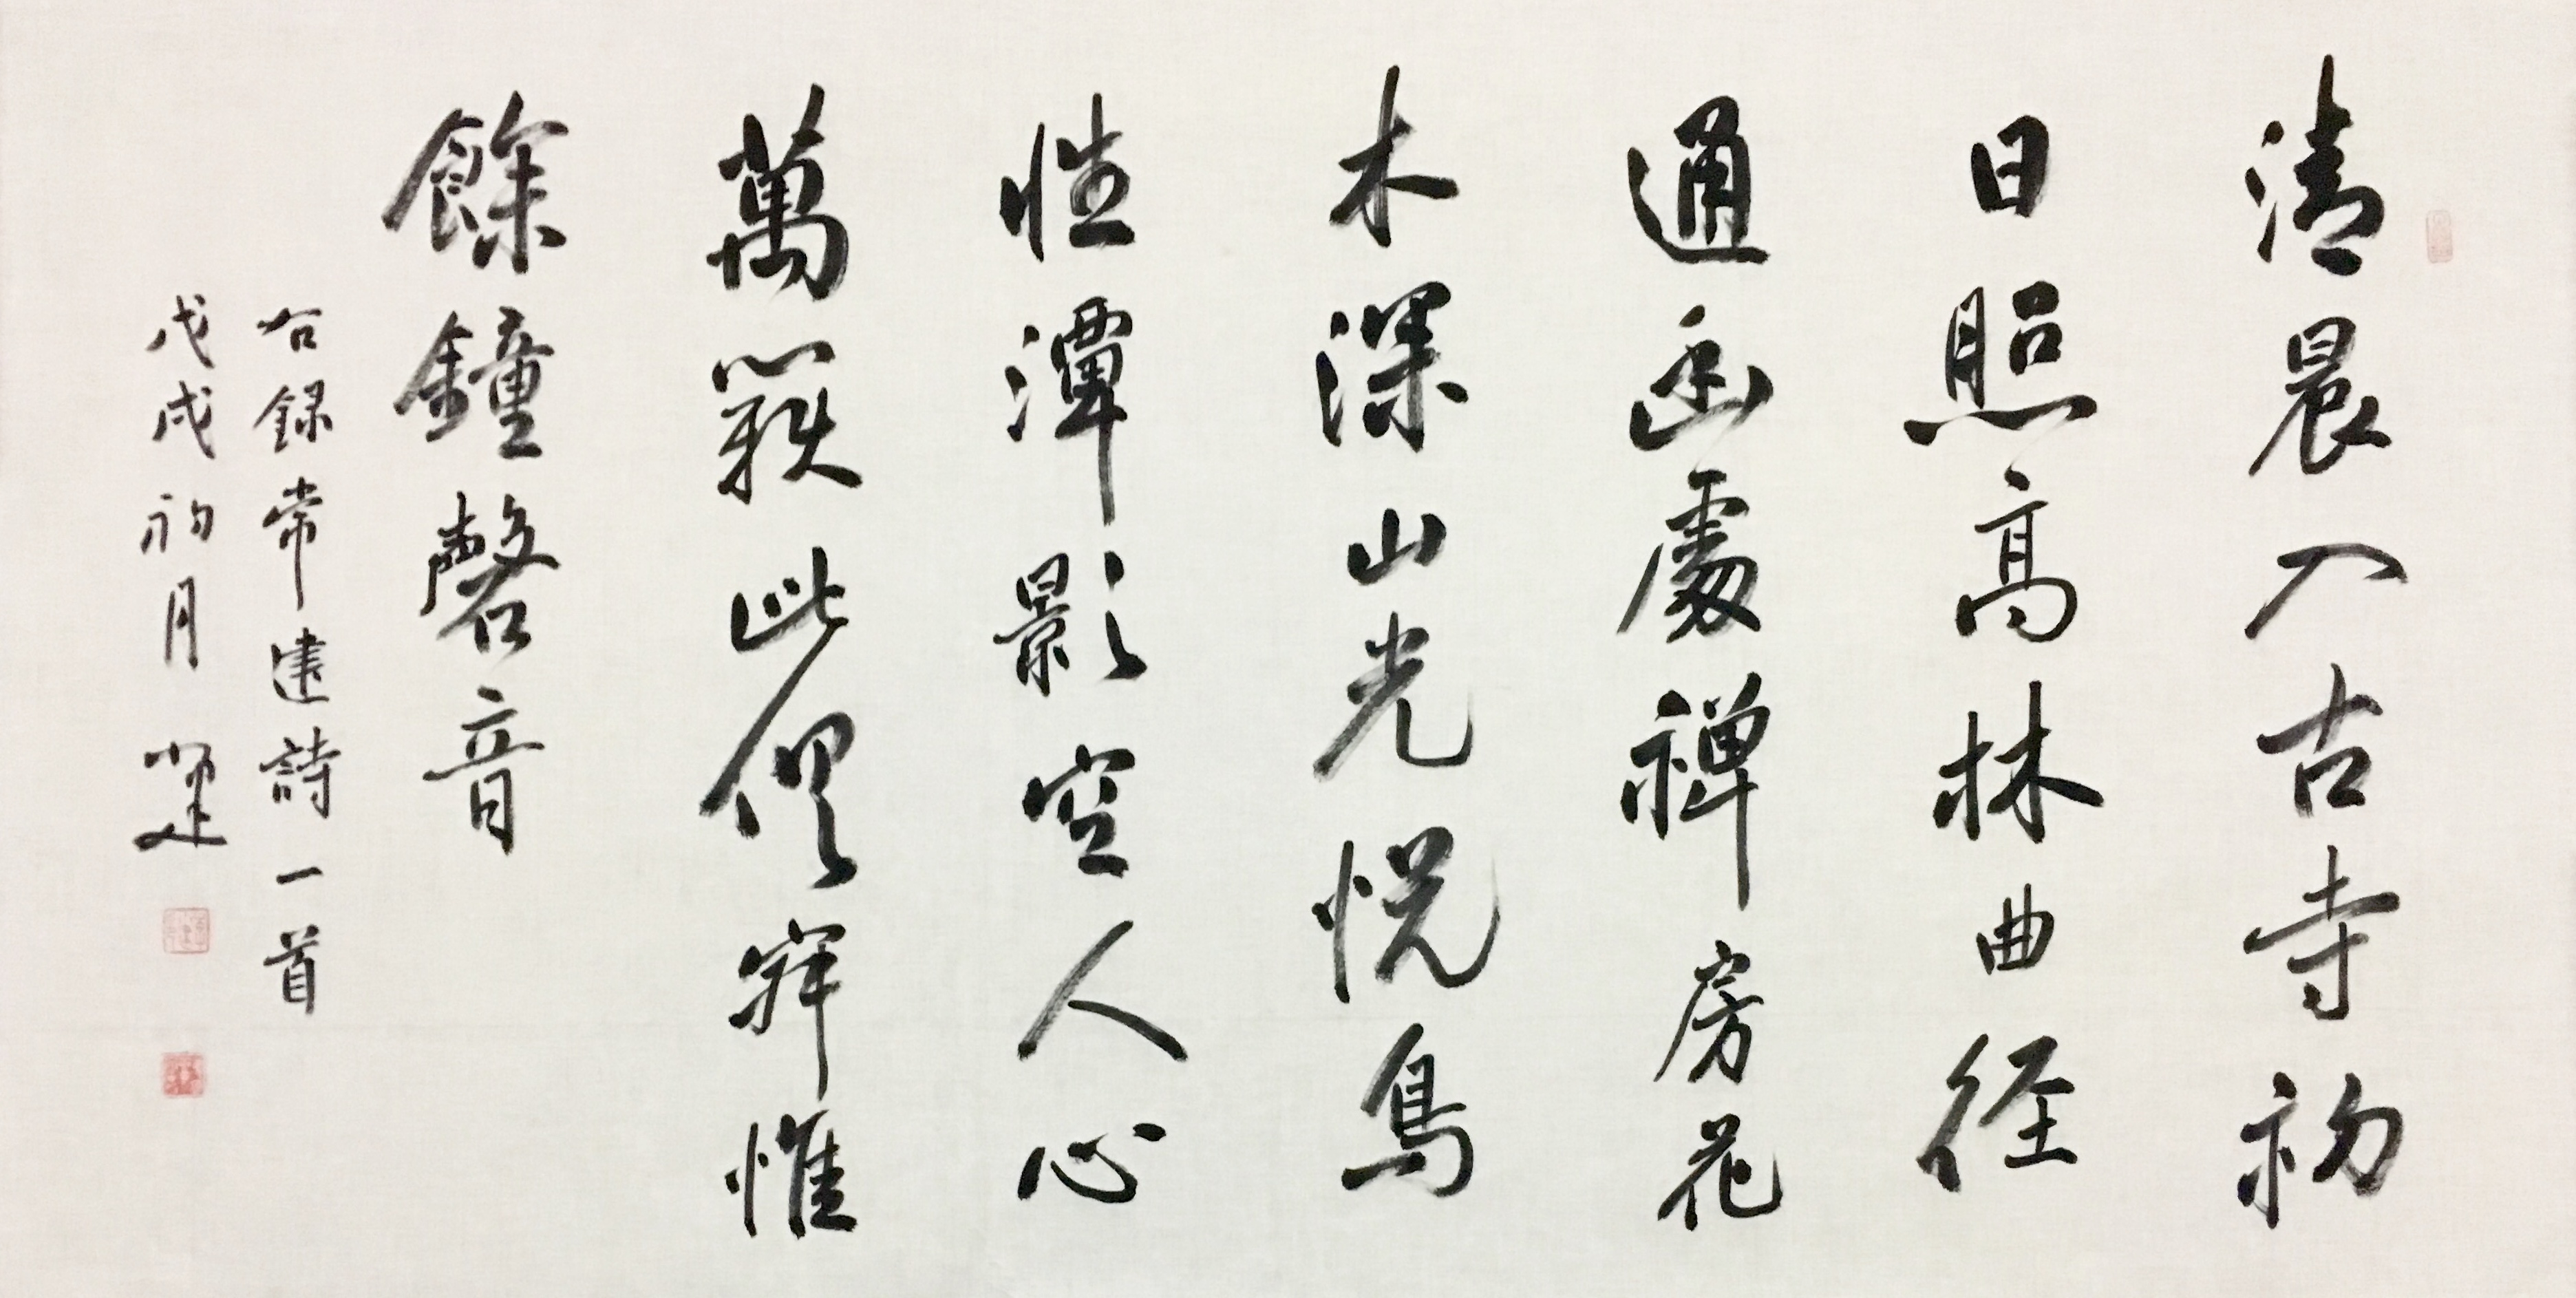 清晨入古寺初
日照高林曲径
通幽處禅房花
木深山光悦鳥
性潭影空人心
萬籁此俱寂惟
餘鐘磬音
右録常建詩一首
戊戌初月